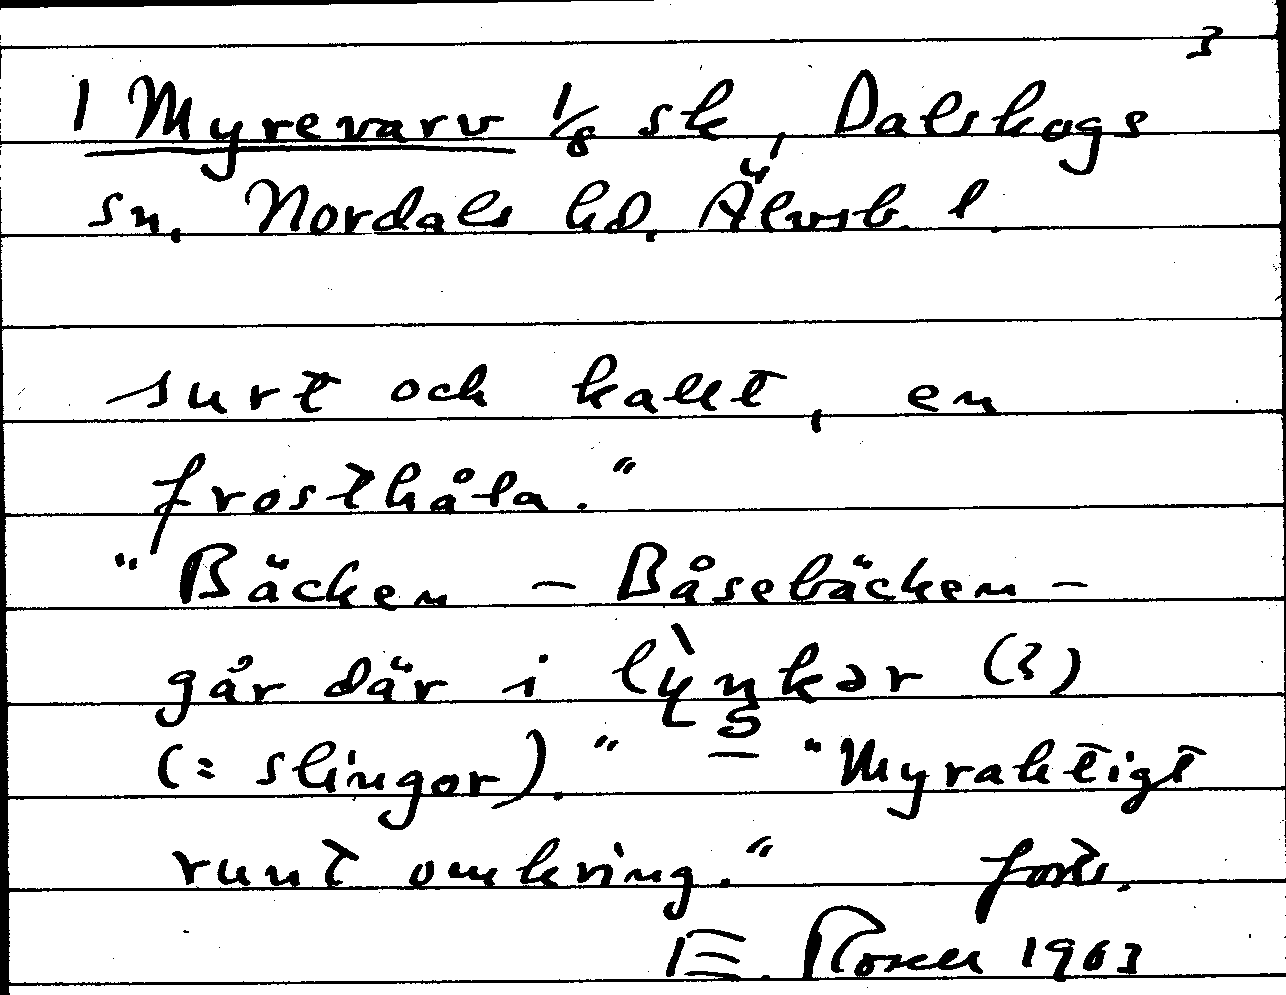 3
1 Myrevarv 1/8 sk, Dalskogs
sn, Nordals hd, Älvsb. l.
surt och kallt, en
frosthåla."
"Bäcken – Båsebäcken –
går där i lỳnkər (?)
(= slingor)." – "Myraktigt
runt omkring." forts.
E. 1963